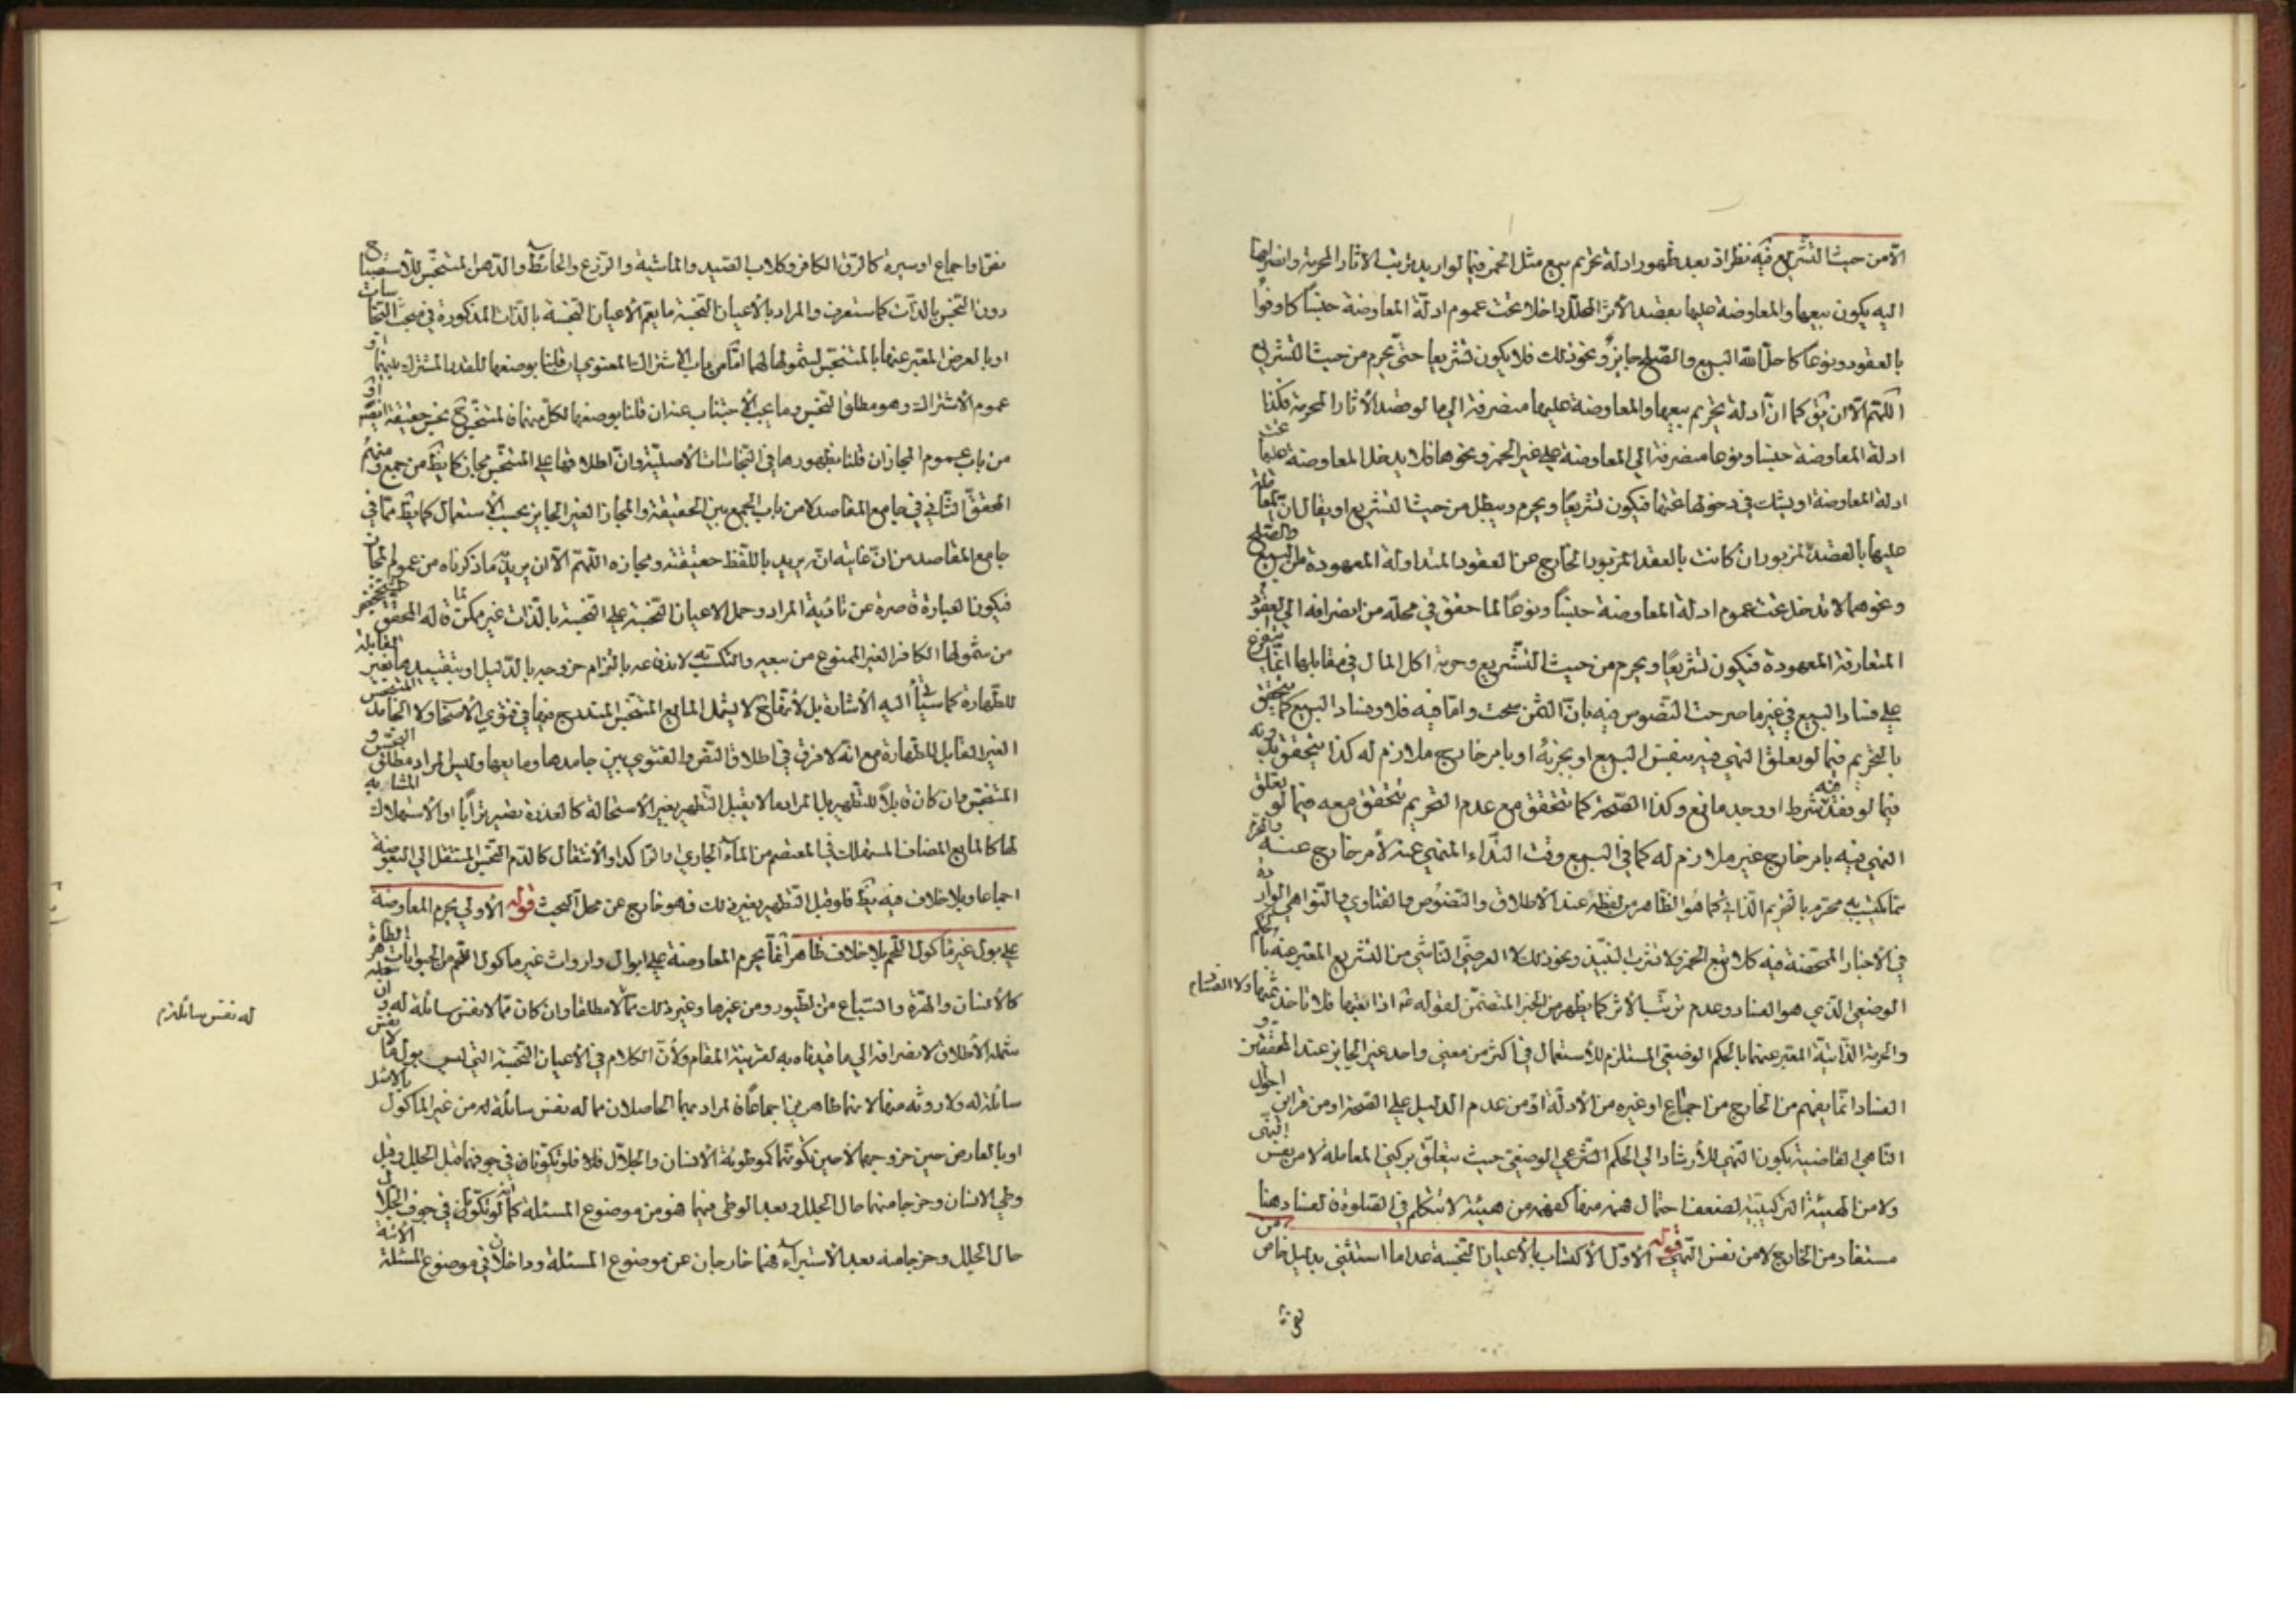 الّا من حيث التشريع فيه نظر اذ بعد ظهور ادلة تحريم بيع مثل الخمر فيما لو اريد ترتيب الاثار المحرمة وانصرافها
اليه يكون بيعها والمعاوضة عليها بقصد الأثر المحلل داخلا تحت عموم ادلّة المعاوضة جنسًا كاوفوا
بالعقود ونوعًا كاحلّ الله البيع والصّلح جايز ونحو ذلك فلا يكون تشريعا حتّى يحرم من حيث التشريع
اللهّم الّا ان يق كما انّ ادلة تحريم بيعها والمعاوضة عليها منصرفة الى ما لو قصد الأثار المحرمة فكذا
ادلة المعاوضة جنسا ونوعا منصرفة الى المعاوضة على غير الخمر ونحوها فلا يدخل المعاوضة عليها تحت
ادلة المعاوضة او يشك في دخولها تحتها فيكون تشريعًا ويحرم ويبطل من حيث التشريع او يقال انّ المعاملة
عليها بالقصد المزبور ان كانت بالعقد المزبور الخارج عن العقود المتداولة المعهودة من البيع والصلح
ونحوهما لا تدخل تحت عموم ادلة المعاوضة جنسًا ونوعًا لما حقق في محلّه من انصرافه الى العقود
المتعارفة المعهودة فيكون تشريعًا ويحرم من حيث التّشريع وحرمة اكل المال في مقابلها انّما يتفرع
على فساد البيع في غير ما صرحت النصوص فيه بانّ الثمن سحت وامّا فيه فلا وفساد البيع كما يتحقق
بالتحريم فيما لو تعلق النهى فيه بنفس البيع او بجزئه او بامر خارج ملازم له كذا يتحقق بدونه
فيما لو فقد فيه شرط او وجد مانع وكذا الصّحة كما تتحقق مع عدم التحريم تتحقق معه فيما لو تعلق
النهى فيه بامر خارج غير ملازم له كما في البيع وقت النّداء المنهى عنه لأمر خارج عنه
ممّا يكتسب به محرّم بالتحريم الذاتي كما هو الظاهر من لفظه عند الأطلاق والنّصوص والفتاوي والنّواهي الواردة
في الأخبار المتضمنة فيه كلا تبع الخمر ولا تشرب النبيذ ونحو ذلك لا العرضىّ النّاشي من التشريع المعبر عنه بالحكم
الوضعي الّذي هو الفساد وعدم ترتّب الأثر كما يظهر من الخبر المتضمّن لقوله
والحرمة الذّاتية المعبر عنها بالحكم الوضعي المستلزم للأستعمال في اكثر من معنى واحد غير الجايز عند المحققين
الفساد انّما يفهم من الخارج من اجماع او غيره من الأدلّة او من عدم الدليل على الصّحة او من قراين احوال
النّاهي القاضية بكون النّهى للأرشاد الى الحكم الشّرعي الوضعى حيث يتعلّق بركني المعاملة لا من نفس النهى
ولا من الهيئة التركيبيّة لضعف احتمال فهمه منها كفهمه من هيئة لا تتكلم في الصّلوة فالفساد هنا
مستفاد من الخارج لا من نفس النّهى قوله الأوّل الأكتساب بالأعيان النّجسة عدا ما استثنى بدليل خاص من
نص او اجماع او سيرة كالرّق الكافر وكلاب الصّيد والماشية والزّرع والحائط والدّهن المتنجّس للأستصباح
دون النّجس بالذّات كما ستعرف والمراد بالأعيان النّجسة ما يعمّ الأعيان النّجسة بالذّات المذكورة في مبحث النّجاسات
او بالعرض المعبر عنها بالمتنجّس لشمولها لهما امّا من باب الاشتراك المعنوي ان قلنا بوضعها للقدر المشترك بينهما او
عموم الأشتراك وهو مطلق النّجس وما يجب الأجتناب عنه ان قلنا بوضعها لكلّ منهما
من باب عموم المجاز ان قلنا بظهورها في النّجاسات الأصليّة وانّ اطلاقها على المتنجّس مجاز كما يظ من جمع ومنهم
المحقّق الثّاني في جامع المقاصد لا من باب الجمع بين الحقيقة والمجاز الغير الجايز بحسب الأستعمال كما يظ ممّا في
جامع المقاصد من انّ غايته انّه يريد باللّفظ حقيقته ومجازه اللّهمّ الّا ان يريد ما ذكرناه من عموم المجاز
فيكون العبارة قاصرة عن تادية المراد وحمل الاعيان النّجسة على النّجسة بالذّات غير ممكن
من شمولها الكافر الغير الممنوع من بيعه والتكسّب به لاندفاعه بالتزام خروجه بالدّليل او بتقييدها بغير القابلة
للطّهارة كما سيأتي اليه الأشارة بل لأنّها ح لا يشمل المايع المتنجّس المندرج فيها في فتوى الأصحاب ولا الجامد المتنجس
الغير القابل للطّهارة مع انّه لا فرق في اطلاق النّص والفتوى بين جامدها ومايعها وليس المراد مطلق النجس و
المتنجّس وان كان قابلا للتّطهير بل المراد ما لا يقبل التّطهير بغير الأستحالة كالعذرة تصير ترابًا او الأستهلاك
لها كالمايع المضاف المستهلك في المعتصم من الماء الجاري والرّاكد او الأنتقال كالدّم النّجس المنتقل الى البعوضة
اجماعا وبلا خلاف فيه يظ فلو قبل التّطهير بغير ذلك فهو خارج عن محلّ البحث قوله الأولى يحرم المعاوضة
على بول غير مأكول اللّحم بلا خلاف ظاهر انّما يحرم المعاوضة على ابوال وارواث غير مأكول اللّحم من الحيوانات
كالأنسان والهرّة والسّباع من الطّيور ومن غيرها وغير ذلك ممّا لا مطلقا وان كان ممّا لا نفس سائلة له وان
شمله الأطلاق لانصرافه الى ما قيدناه به لقرينة المقام ولأنّ الكلام في الأعيان النّجسة التي ليس بول ما لا نفس
سائلة له ولا روثه منها لانهما طاهرين اجماعًا فالمراد بهما الحاصلان مما له نفس سائلة له من غير المأكول بالاصل
او بالعارض حين خروجهما لا حين تكونهما كموطوئة الأنسان والجلّال فلا فلو تكوّنا في جوفهما قبل الجلل وقبل
وطى الانسان وخرجا منهما حال الجلل وبعد الوطى فهما هو من موضوع المسئلة كما لو تكوّنا في جوف الجلال
حال الجلل وخرجا منه بعد الأستبراء فهما خارجان عن موضوع المسئلة وداخلان في موضوع المسئلة الأتية
له نفس سائلة